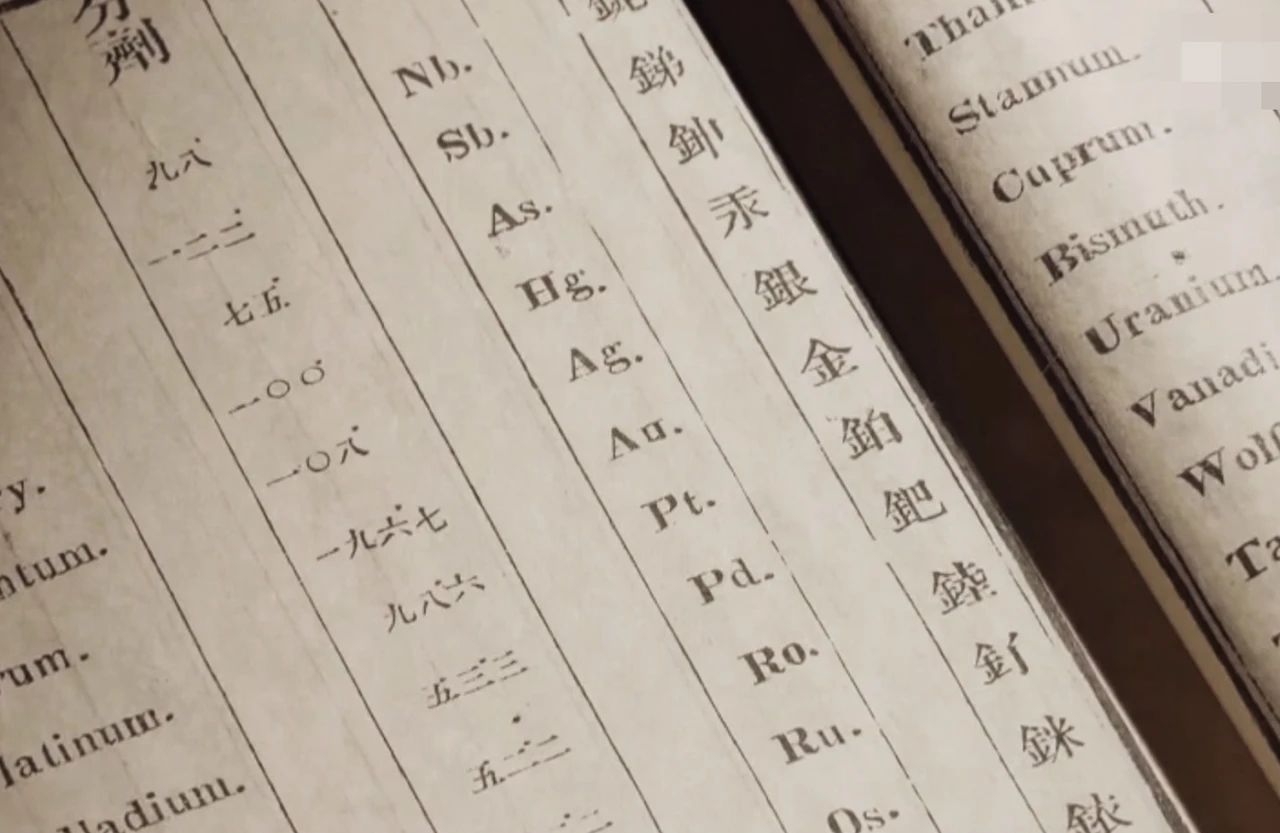 分劑
九八 Nb.
一二二 Sb. 銻
七五 As. 鉮
y. 一〇〇 Hg. 汞
ntum. 一〇八 Ag. 銀
rum. 一九六七 Au. 金
latinum. 九八六 Pt. 鉑
lladium. 五三三 Pd. 鈀
五二二 Ro. 錴
Ru. 釕
Os. 銤
銥
Stannum.
Cuprum.
Bismuth.
Uranium.
Vanadi
Wolf
Ta